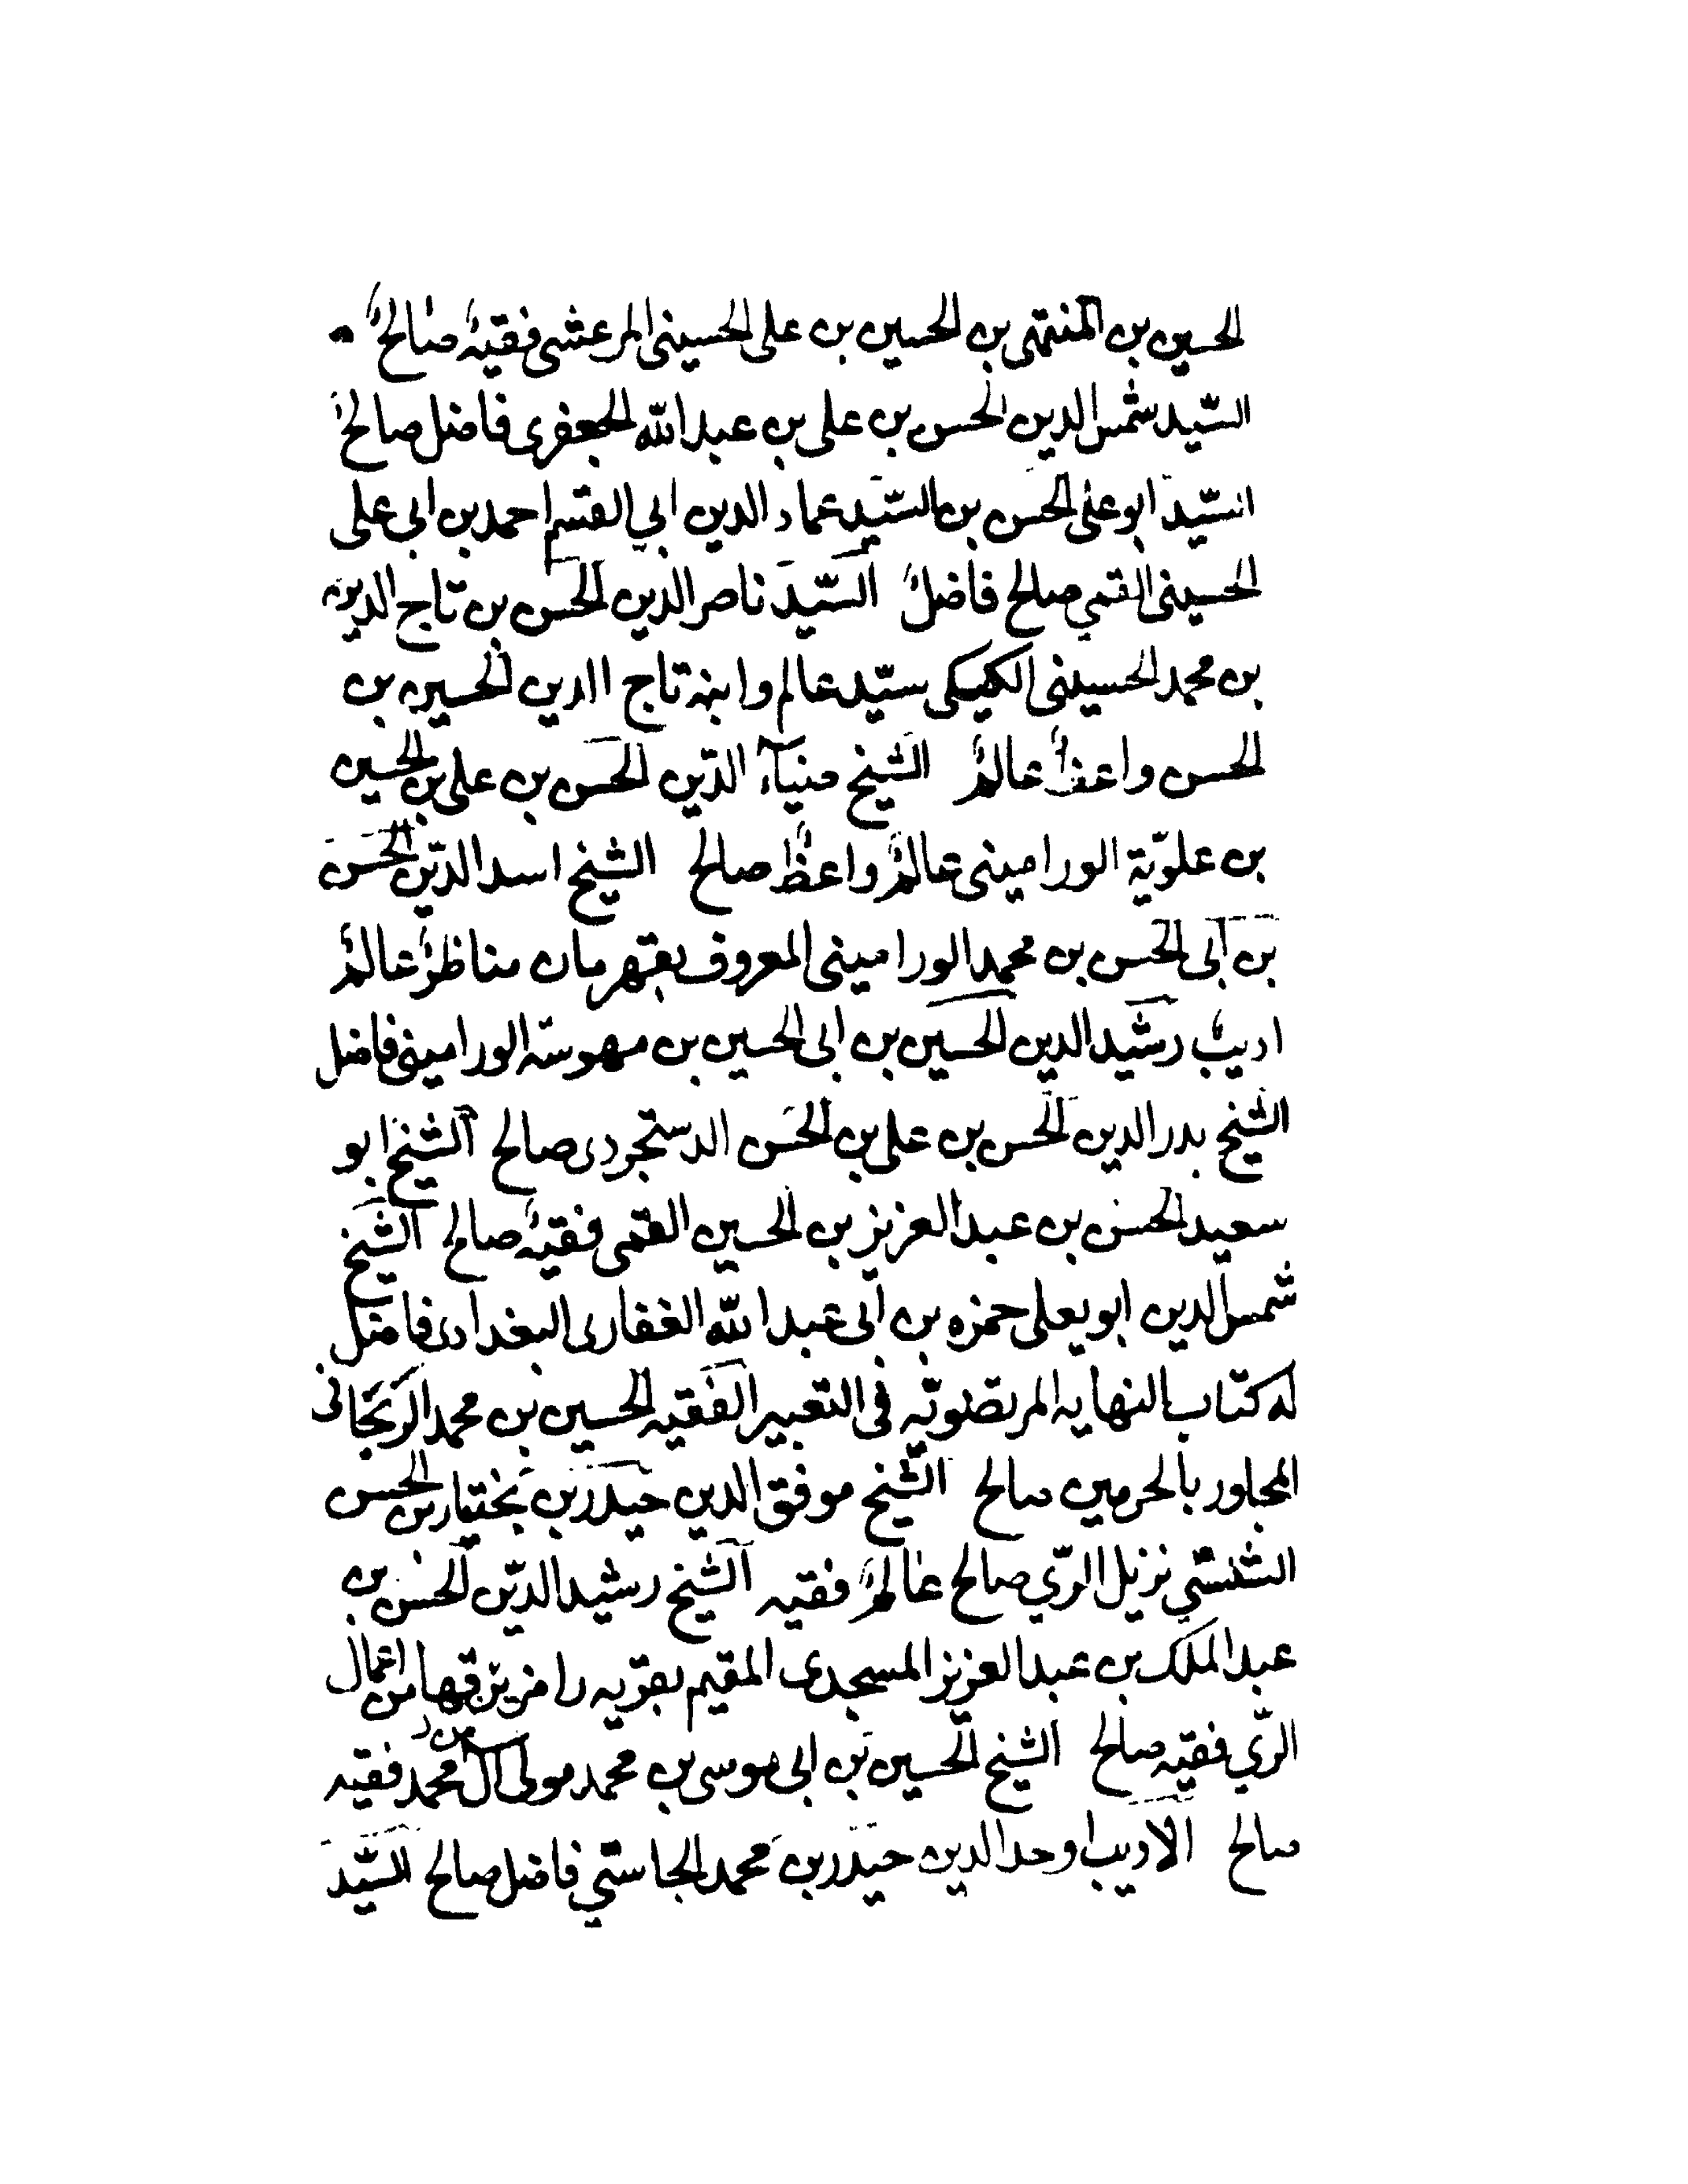 الحسين بن المنتهى بن الحسين بن على الحسينى المرعشى فقيهٌ صالحٌ
السّيد شمس الدين الحسن بن على بن عبد اللّه الجعفرى فاضل صالحٌ
السّيد ابو على الحسن بن السّيد عماد الدين ابي القسم احمد بن ابى على
الحسينى القمي صالح فاضلٌ السّيد ناصر الدين الحسن بن تاج الدين
بن محمد الحسينى الكيكى سيّد عالم وابنه تاج الدين الحسين بن
الحسن واعظٌ عالمٌ الشيخ ضيآء الدّين الحسن بن على بن الحسين
بن علويّة الورامينى عالمٌ واعظٌ صالح الشيخ اسد الدّين الحسن
بن ابى الحسن بن محمد الورامينى المعروف بقهرمان مناظرٌ عالمٌ
اديبٌ رشيد الدين الحسين بن ابى الحسين بن مهوسة الورامينى فاضل
الشيخ بدر الدين الحسن بن على بن الحسن الدستجردى صالح الشيخ ابو
سعيد الحسن بن عبد العزيز بن الحسين القمى فقيهٌ صالح الشيخ
شمس الدين ابو يعلى حمزه بن ابى عبد اللّه الغفارى البغدادى فاضل
له كتاب النهايه المرتضويّه فى التعبير الفقيه الحسين بن محمد الريحانى
المجاور بالحرمين صالح الشيخ موفق الدين حيدر بن بختيار بن الحسن
الشنشي نزيل الرّي صالح عالمٌ فقيه الشيخ رشيد الدّين الحسن بن
عبد الملك بن عبد العزيز المسجدى المقيم بقريه رامرين قها من اعمال
الرّي فقيه صالح الشيخ الحسين بن ابى موسى بن محمد مولى آل محمد فقيه
صالح الاديب اوحد الدين حيدر بن محمد الجاستي فاضل صالح السّيد